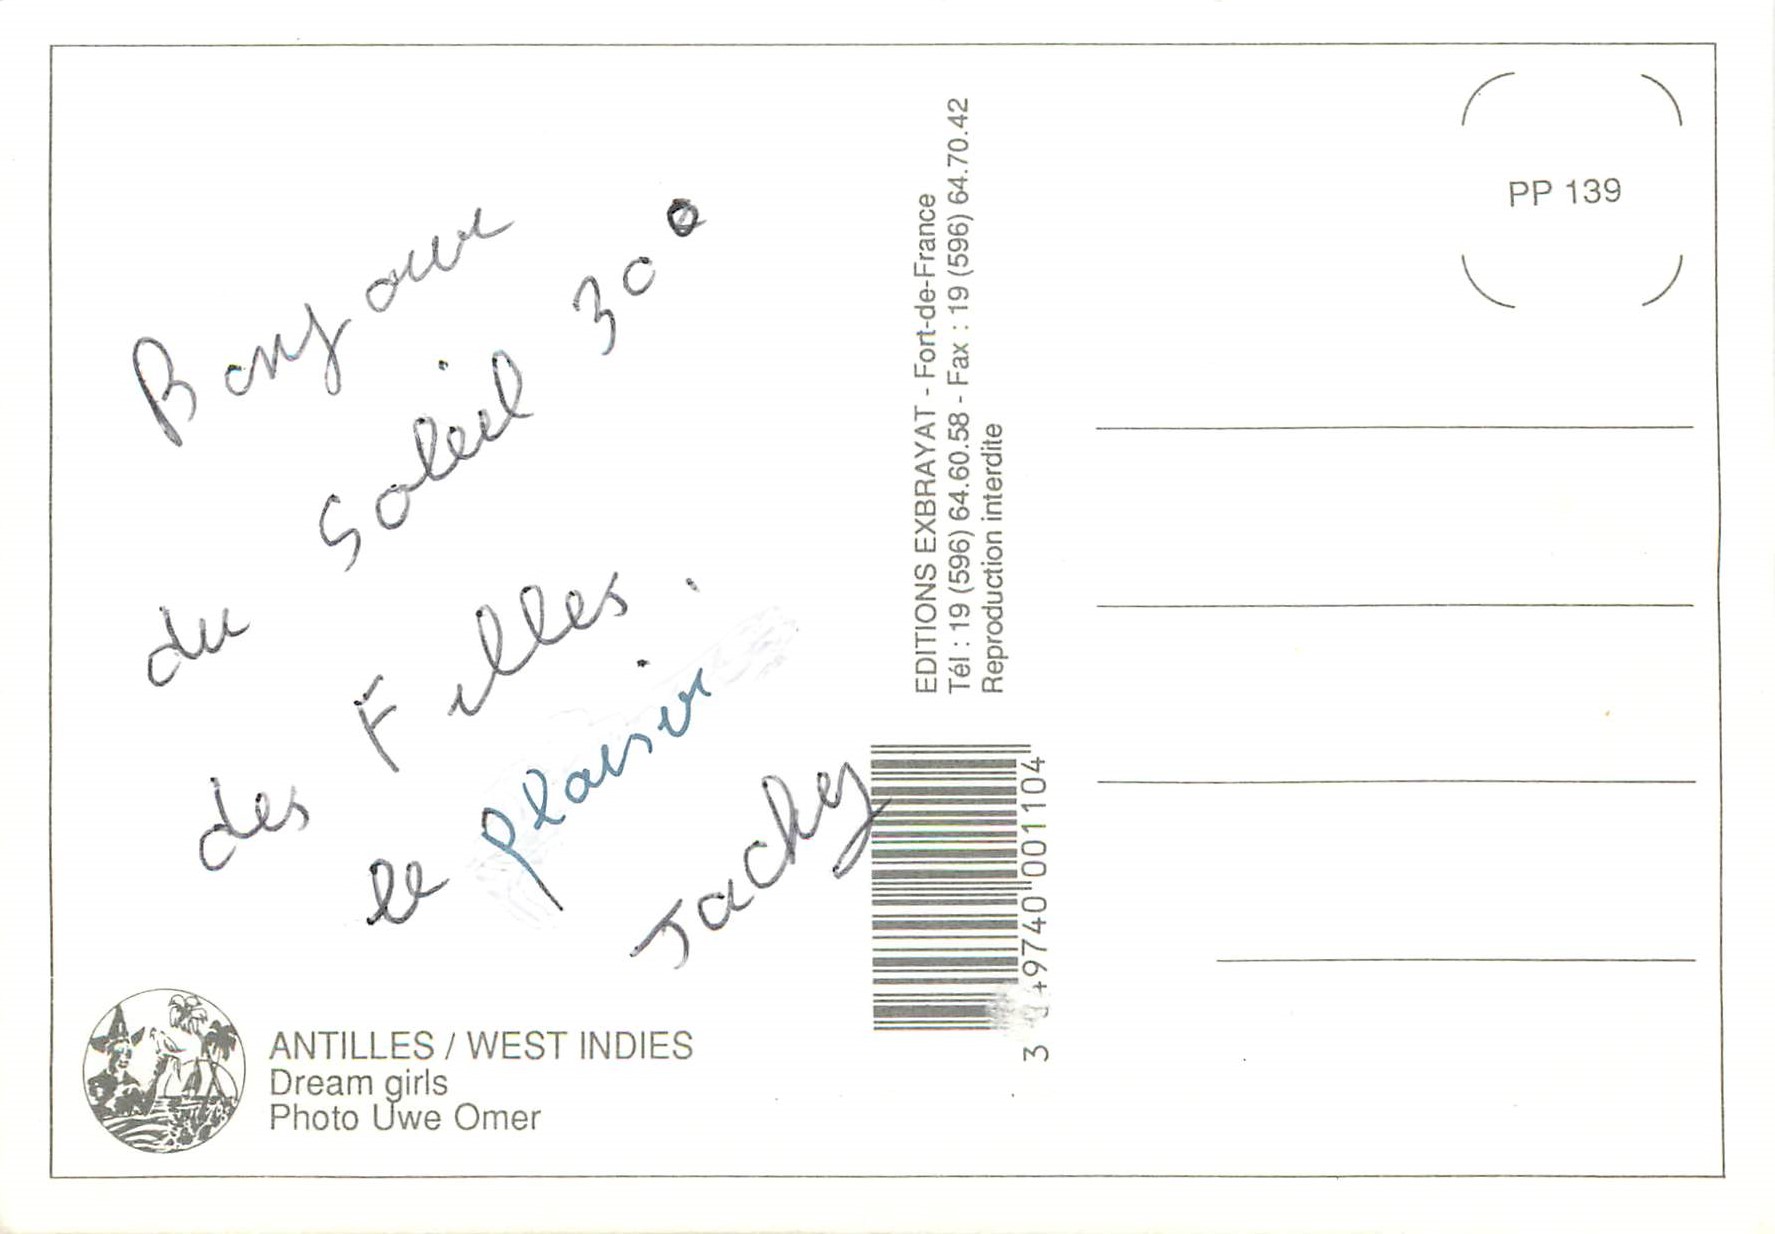 Bonjour
du Soleil 30°
des Filles.
le plaisir
Jacky
ANTILLES / WEST INDIES
Dream girls
Photo Uwe Omer
EDITIONS EXBRAYAT - Fort-de-France
Tél : 19 (596) 64.60.58 - Fax : 19 (596) 64.70.42
Reproduction interdite
PP 139